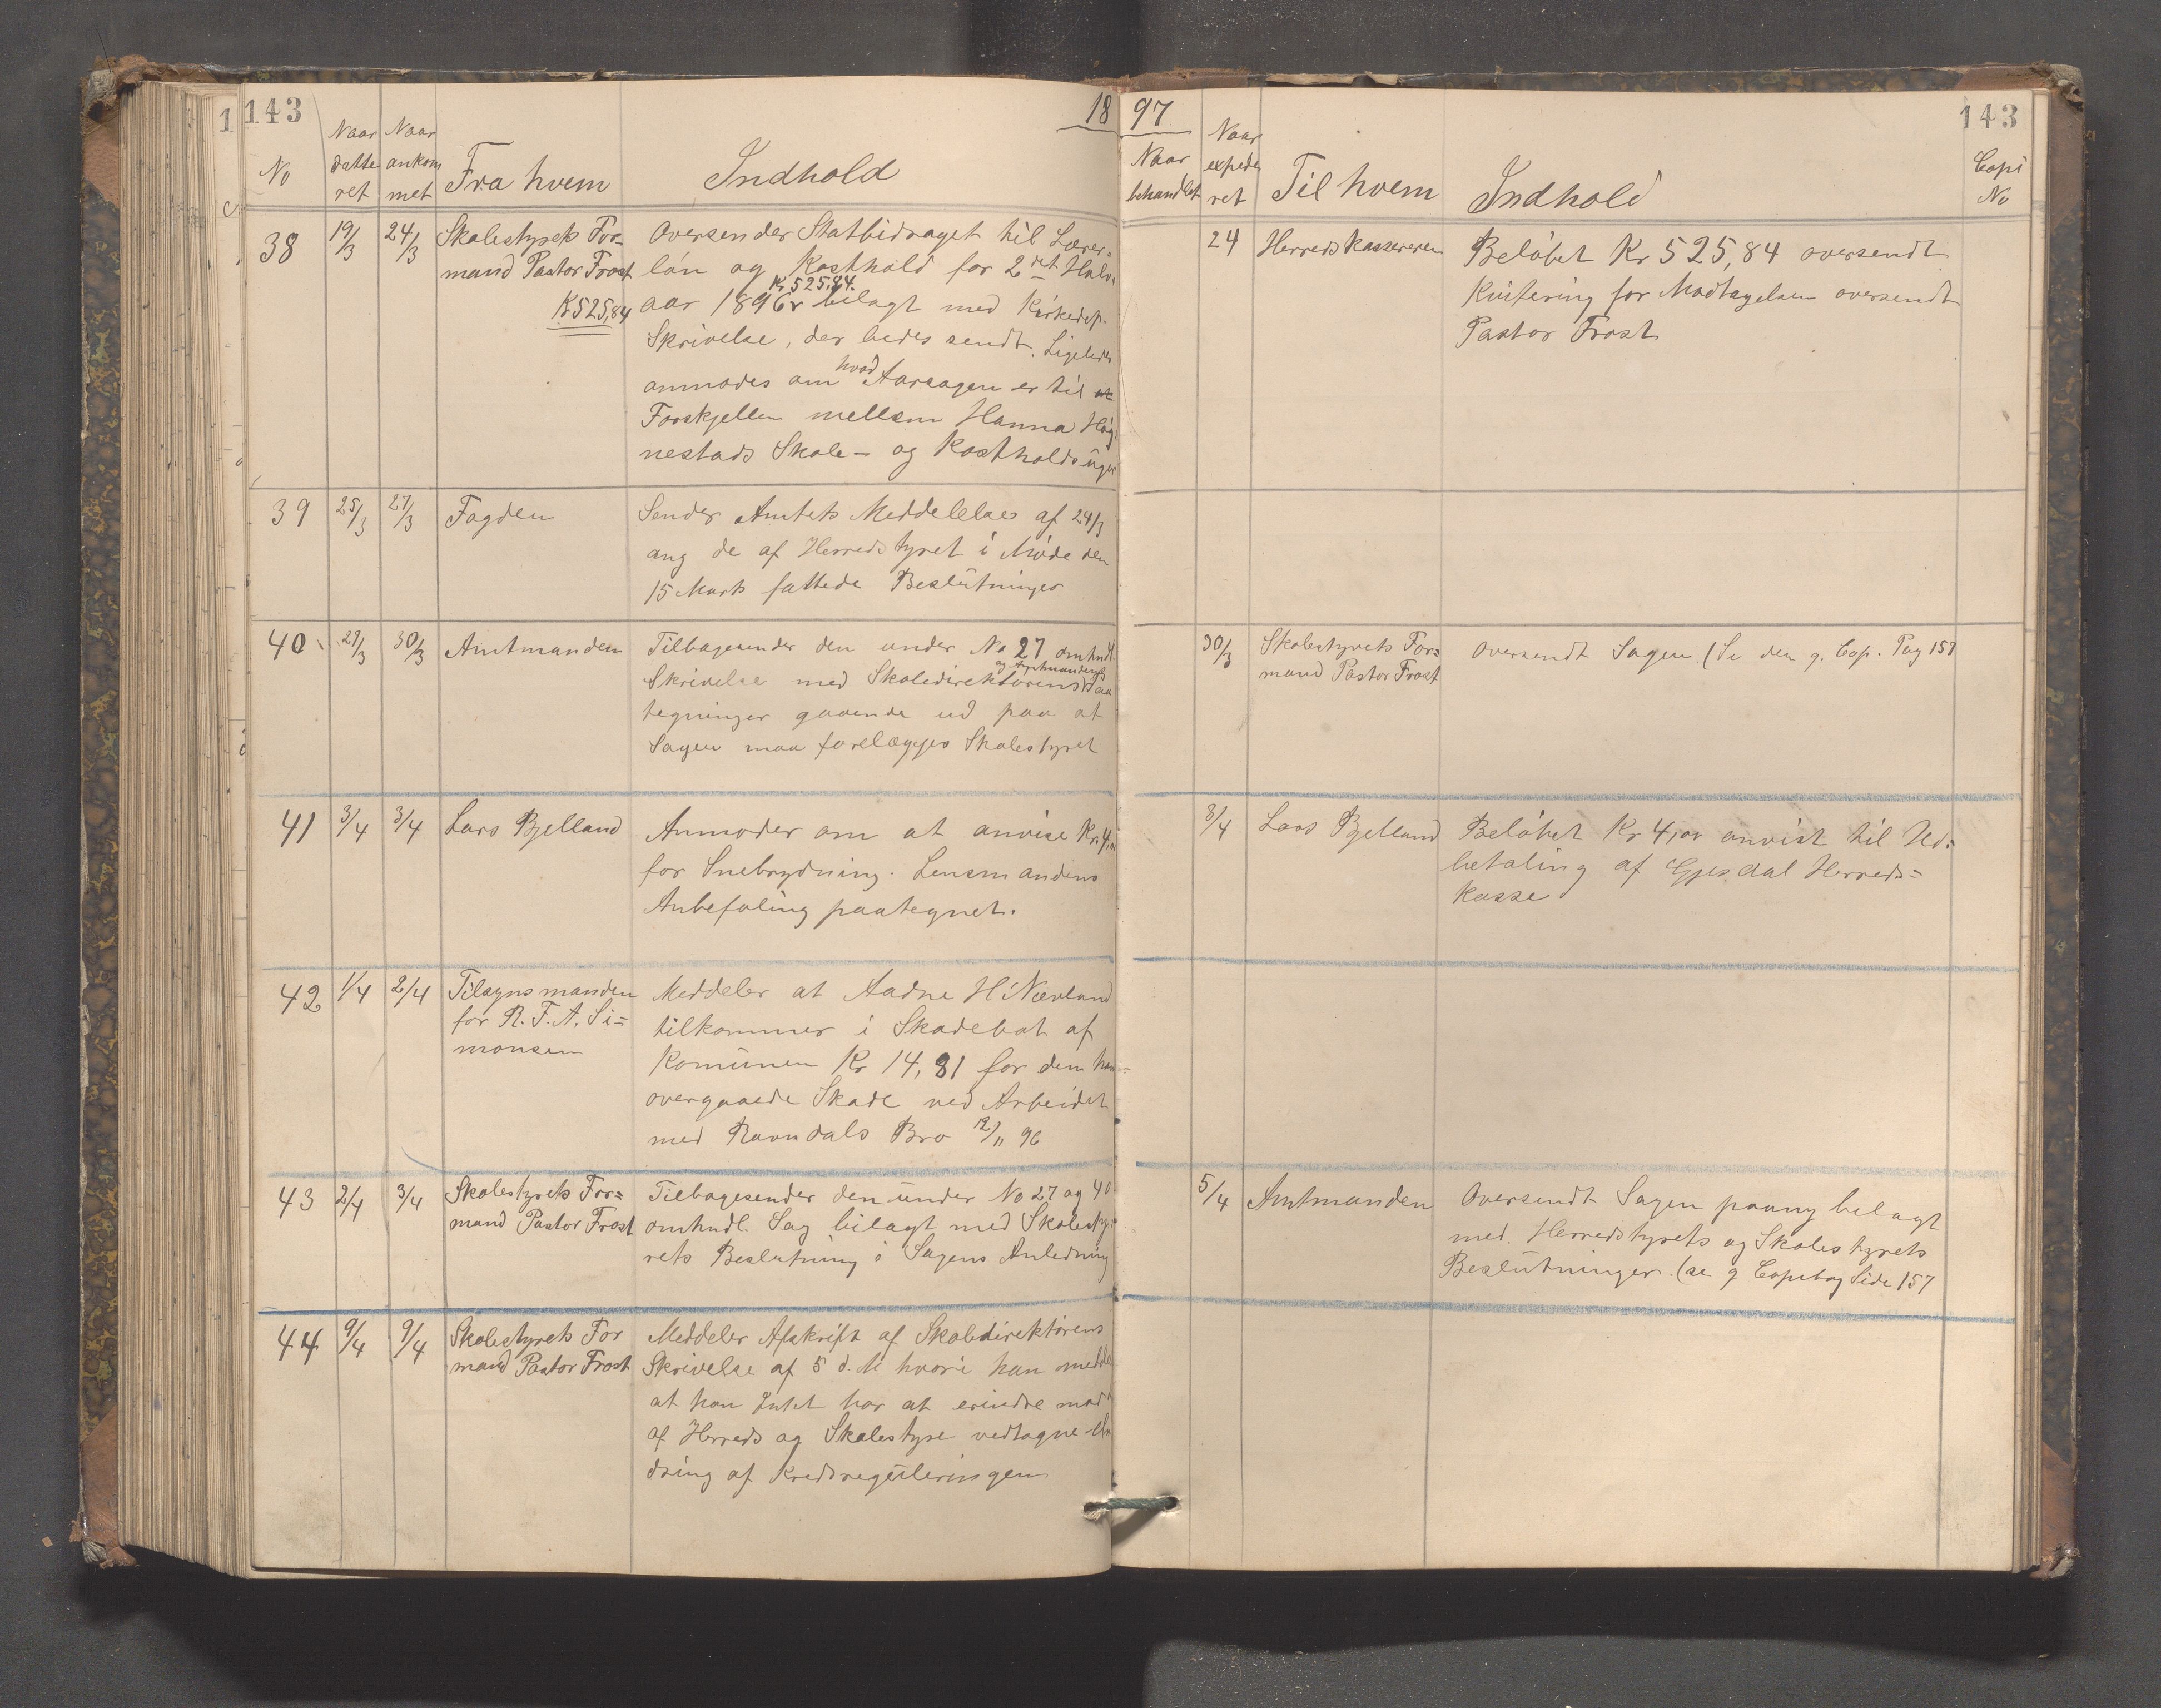 143
18
97
143
No
Naar datte ret
Naar ankom met
Fra hvem
Indhold
Naar behandlet
Naar expede ret
Til hvem
Indhold
Copi No
38
19/3
24/3
Skolestyrets For=
mand Pastor Frost
Kr 525,84
Oversender Statbidraget til Lærer=
løn og Kosthold for 2det Halv=
Kr 525,84.
aar 1896 bilagt med Kirkedep.
Skrivelse, der bedes sendt. Ligeledes
anmodes om hvad Aarsagen er til
Forskjellen mellem Hanna Høg=
nestads Skole- og Kostholdsuger
24
Herredskassereren
Beløbet Kr 525,84 oversendt
Kvitering for Modtagelsen oversendt
Pastor Frost
39
25/3
27/3
Fogden
Sender Amtets Meddelelse af 24/3
ang de af Herredstyret i Møde den
15 Marts fattede Beslutninger
40
29/3
30/3
Amtmanden
Tilbagesender den under No 27 omhndl.
og Amtmandens
Skrivelse med Skoledirektørens Paa
tegninger gaaende ud paa at
Sagen maa forelægges Skolestyret
30/3
Skolestyrets For=
mand Pastor Frost
Oversendt Sagen (Se den g. Cop. Pag 157
41
3/4
3/4
Lars Bjelland
Anmoder om at anvise Kr. 4,00
for Snebrydning. Lensmandens
Anbefaling paategnet.
3/4
Lars Bjelland
Beløbet Kr 4,00 anvist til Ud=
betaling af Gjesdal Herreds=
kasse
42
1/4
2/4
Tilsynsmanden
for R.F.A. Si=
monsen
Meddeler at Aadne H Nævland
tilkommer i Skadebot af
Komunen Kr 14,81 for den ham
overgaaede Skade ved Arbeidet
med Ravndals Bro 12/11 96
43
2/4
3/4
Skolestyrets For=
mand Pastor Frost
Tilbagesender den under No 27 og 40
omhndl. Sag bilagt med Skolesty=
rets Beslutning i Sagens Anledning
5/4
Amtmanden
Oversendt Sagen paany belagt
med Herredstyrets og Skolestyrets
Beslutninger. (se g Copibog Side 157
44
9/4
9/4
Skolestyrets For
mand Pastor Frost
Meddeler Afskrift af Skoledirektørens
Skrivelse af 5 d. M hvori han medde
at han Intet har at erindre mod
af Herreds og Skolestyre vedtagne
dring af Kredsreguleringen